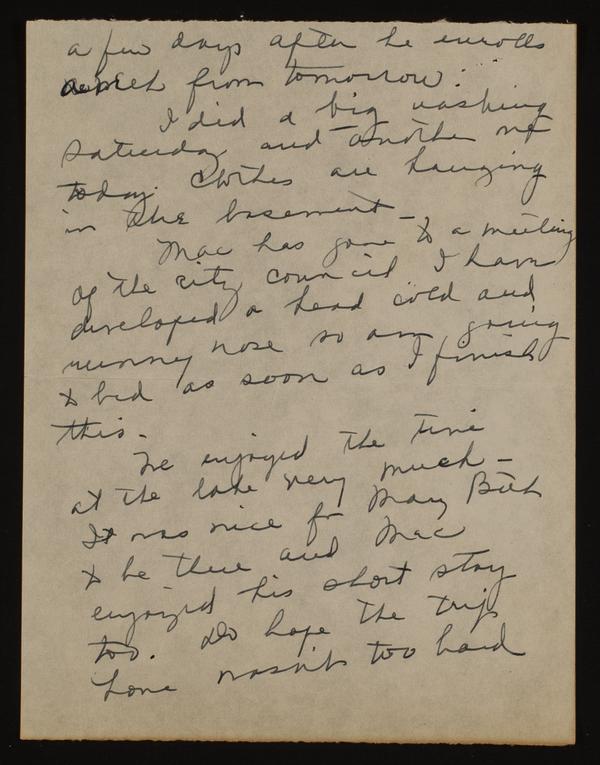 a few days after he enrolls
week from tomorrow.
I did a big washing
Saturday and another
today. Clothes are hanging
in the basement –
Mac has gone to a meeting
of the city council I have
developed a head cold and
runny nose so am going
to bed as soon as I finish
this.
We enjoyed the time
at the lake very much –
It was nice for Mary Beth
to be there and Mac
enjoyed his short stay
too. Do hope the trip
home wasn't too hard